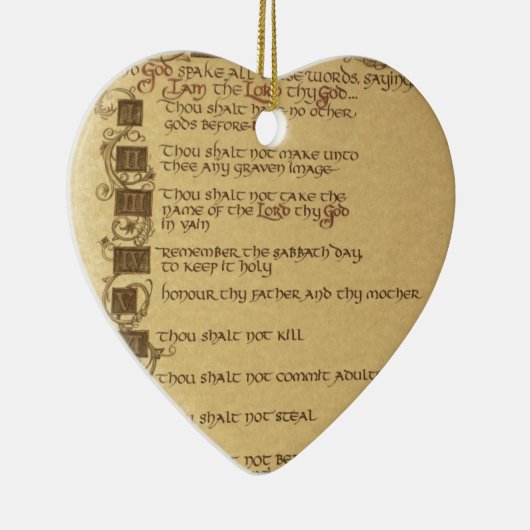 God spake all these words, saying
I am the Lord thy God...
Thou shalt have no other
gods before
I
II
Thou shalt not make unto
thee any graven image
III
Thou shalt not take the
name of the Lord thy God
in vain
IV
Remember the sabbath day,
to keep it holy
V
Honour thy father and thy mother
VI
Thou shalt not kill
Thou shalt not commit
shalt not steal
shalt not